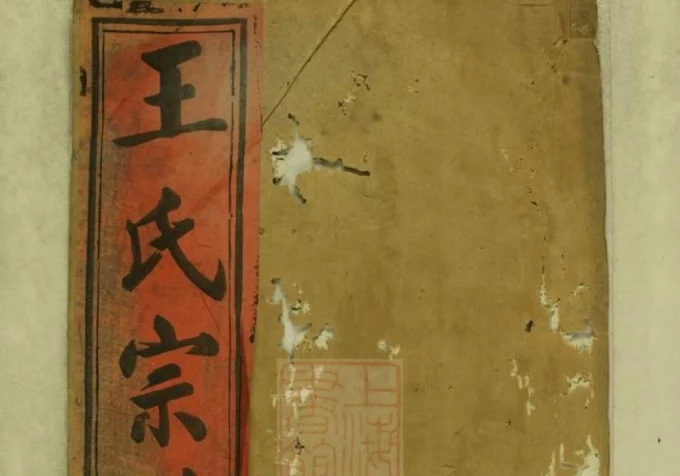 王氏宗
上海